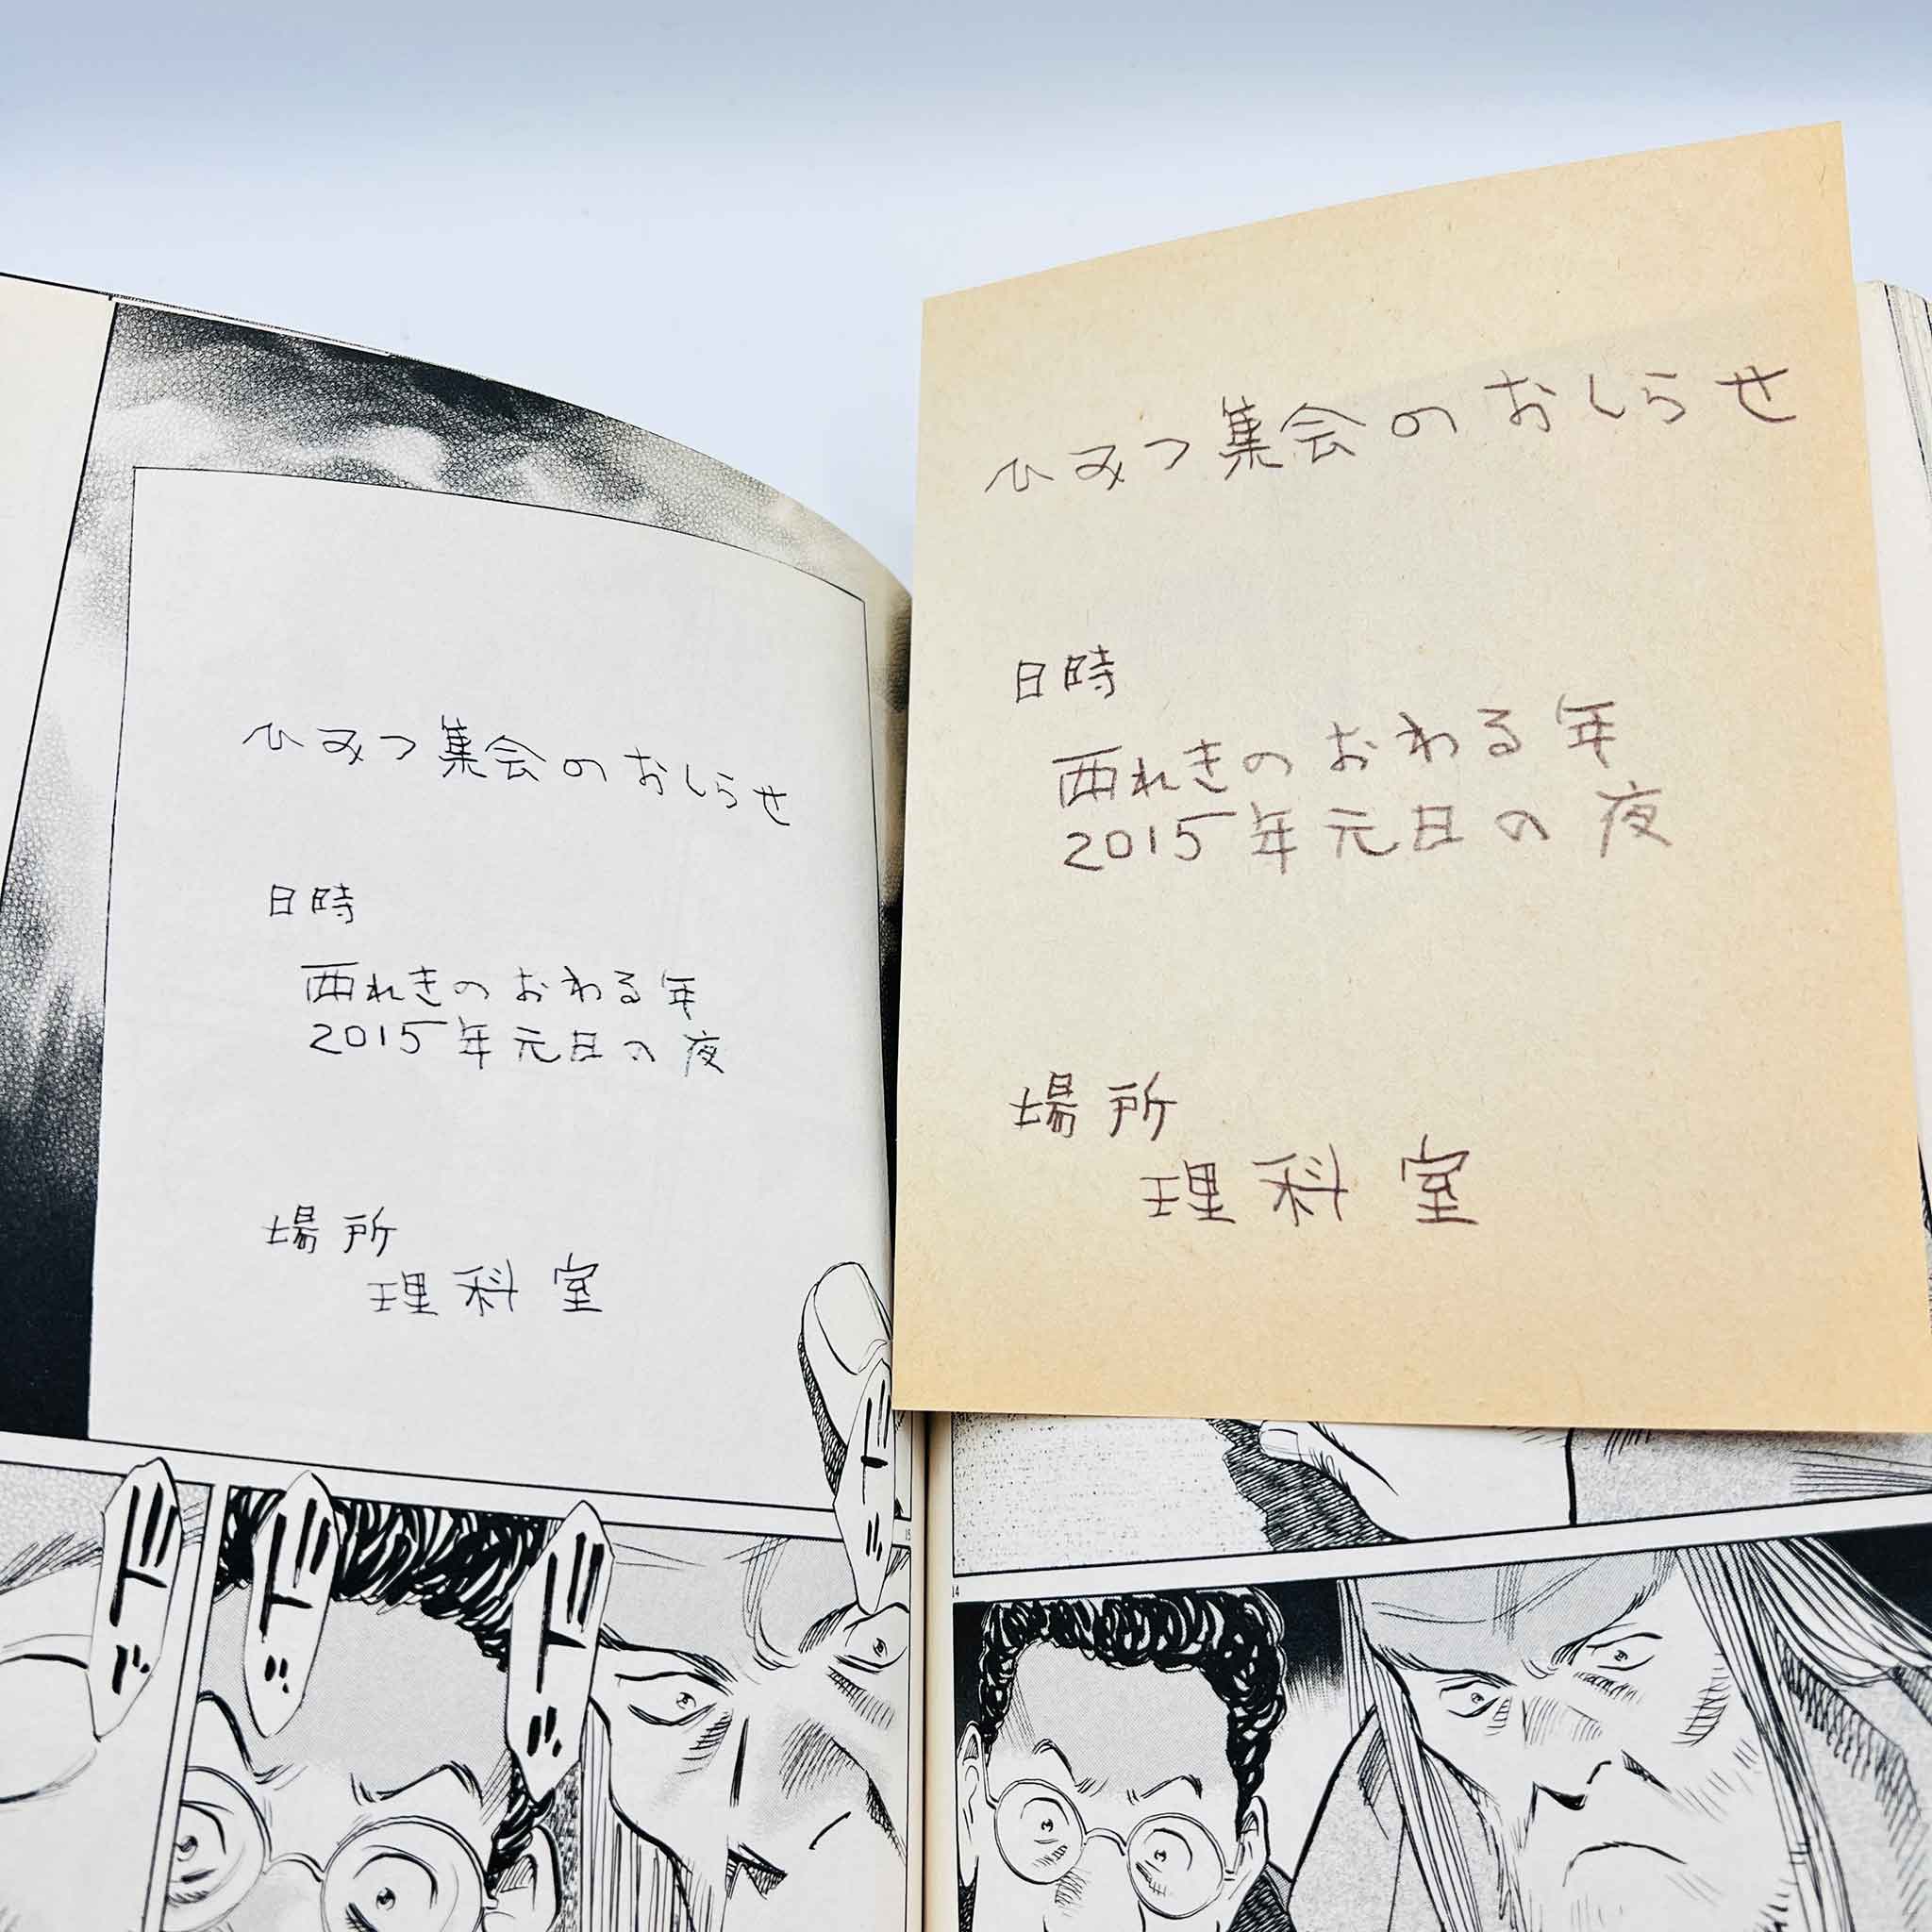 ひみつ集会のおしらせ
日時
西れきのおわる年
2015年元日の夜
場所
理科室
ひみつ集会のおしらせ
日時
西れきのおわる年
2015年元日の夜
場所
理科室
15
14
ドド
ドド
ドド